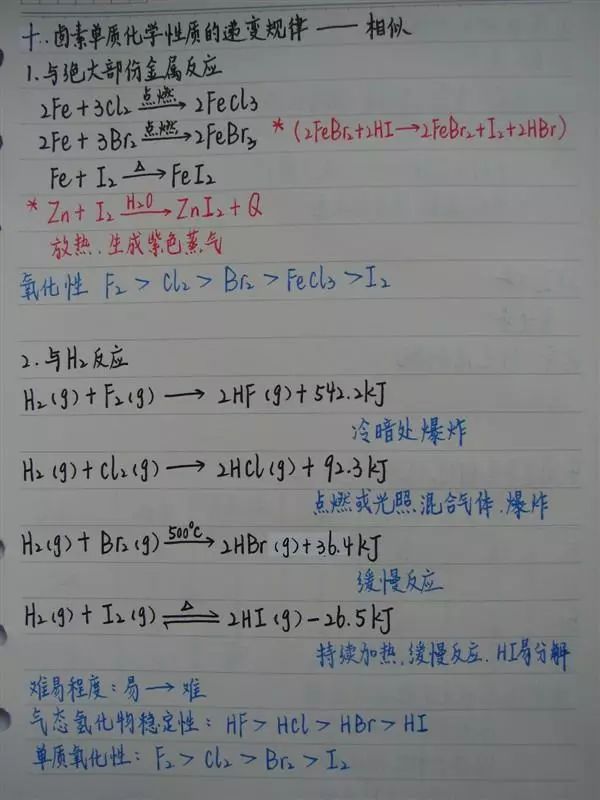 十、卤素单质化学性质的递变规律 —— 相似
1.与绝大部份金属反应
2Fe + 3Cl₂ 点燃→ 2FeCl₃
2Fe + 3Br₂ 点燃→ 2FeBr₃ * (2FeBr₂+2HI→2FeBr₂+I₂+2HBr)
Fe + I₂ △→ FeI₂
* Zn + I₂ H₂O→ ZnI₂ + Q
放热、生成紫色蒸气
氧化性 F₂ > Cl₂ > Br₂ > FeCl₃ > I₂
2.与H₂反应
H₂(g) + F₂(g) → 2HF(g) + 542.2kJ
冷暗处爆炸
H₂(g) + Cl₂(g) → 2HCl(g) + 92.3kJ
点燃或光照混合气体、爆炸
H₂(g) + Br₂(g) 500°C→ 2HBr(g) + 36.4kJ
缓慢反应
H₂(g) + I₂(g) △⇌ 2HI(g) - 26.5kJ
持续加热、缓慢反应、HI易分解
难易程度：易 → 难
气态氢化物稳定性：HF > HCl > HBr > HI
单质氧化性：F₂ > Cl₂ > Br₂ > I₂